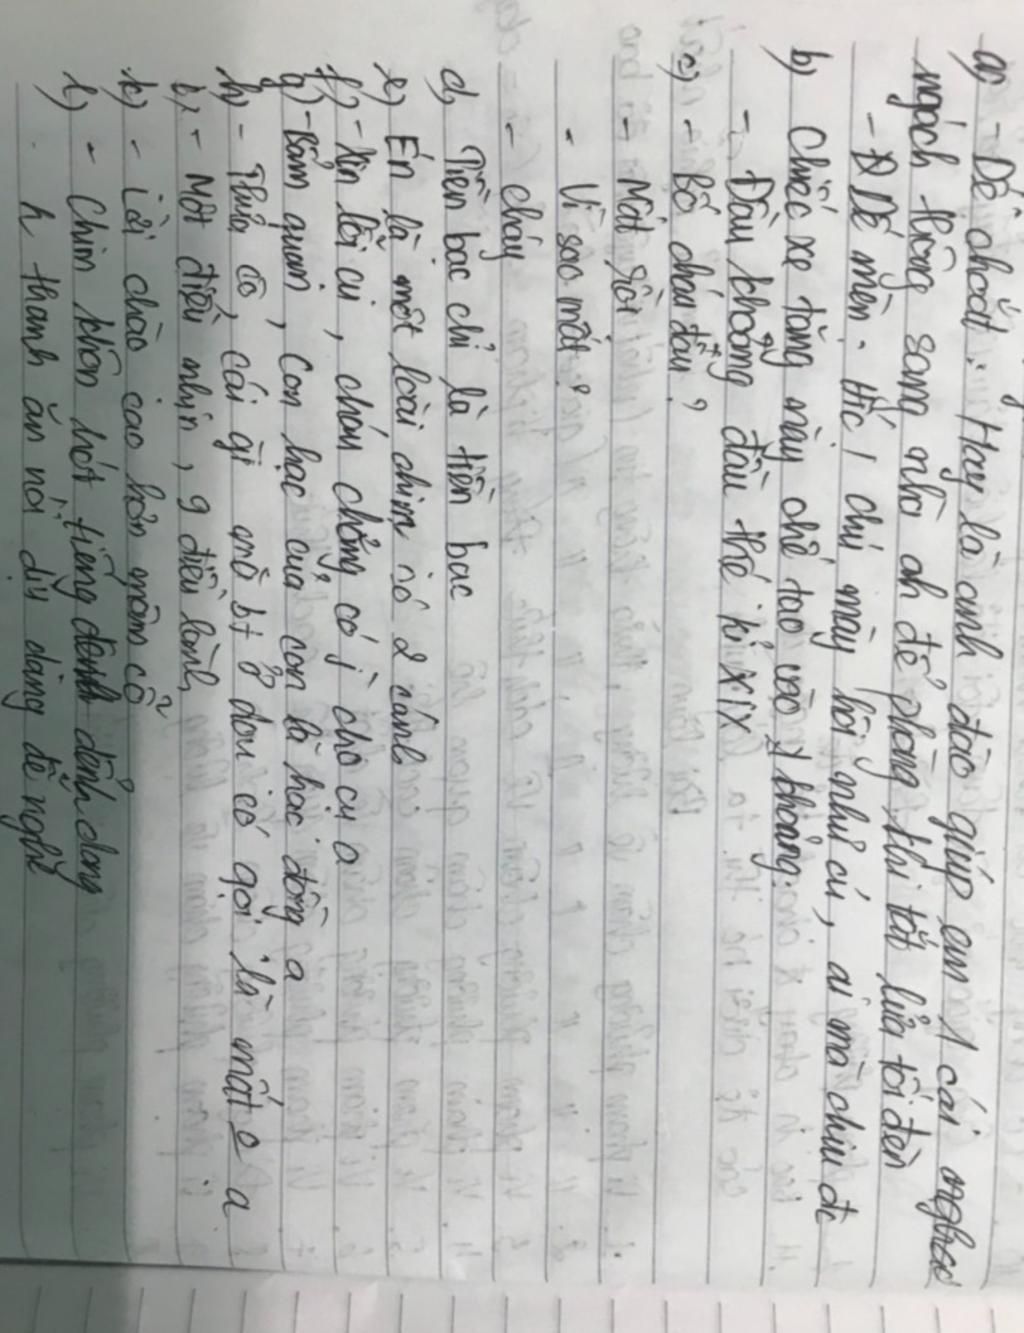 a) - Dế choắt: Hay là anh đào giúp em 1 cái ngách
ngách thông sang nhà anh để phòng khi tắt lửa tối đèn
- Dế mèn. Hức, chú mày hôi như cú, ai mà chịu đc
b) Chiếc xe tăng này chế tạo vào khoảng.
- Đâu khoảng đầu thế kỉ XIX
c) - Bố cháu đâu?
- Mất rồi
- Vì sao mất?
- cháy
d, Tiền bạc chỉ là tiền bạc
e) Én là một loài chim có 2 cánh
f) - Xin lỗi cụ, cháu chẳng có j cho cụ ạ
g) - Bẩm quan, con hạc của con là hạc đồng ạ
h) - Thưa cô, cái gì mà bt ở đâu có gọi là mất o ạ
i, - Một điều nhịn, 9 điều lành
k) - Lời chào cao hơn mâm cỗ
l) - Chim khôn hót tiếng dảnh dang
. h thanh ăn nói dịu dàng dễ nghe